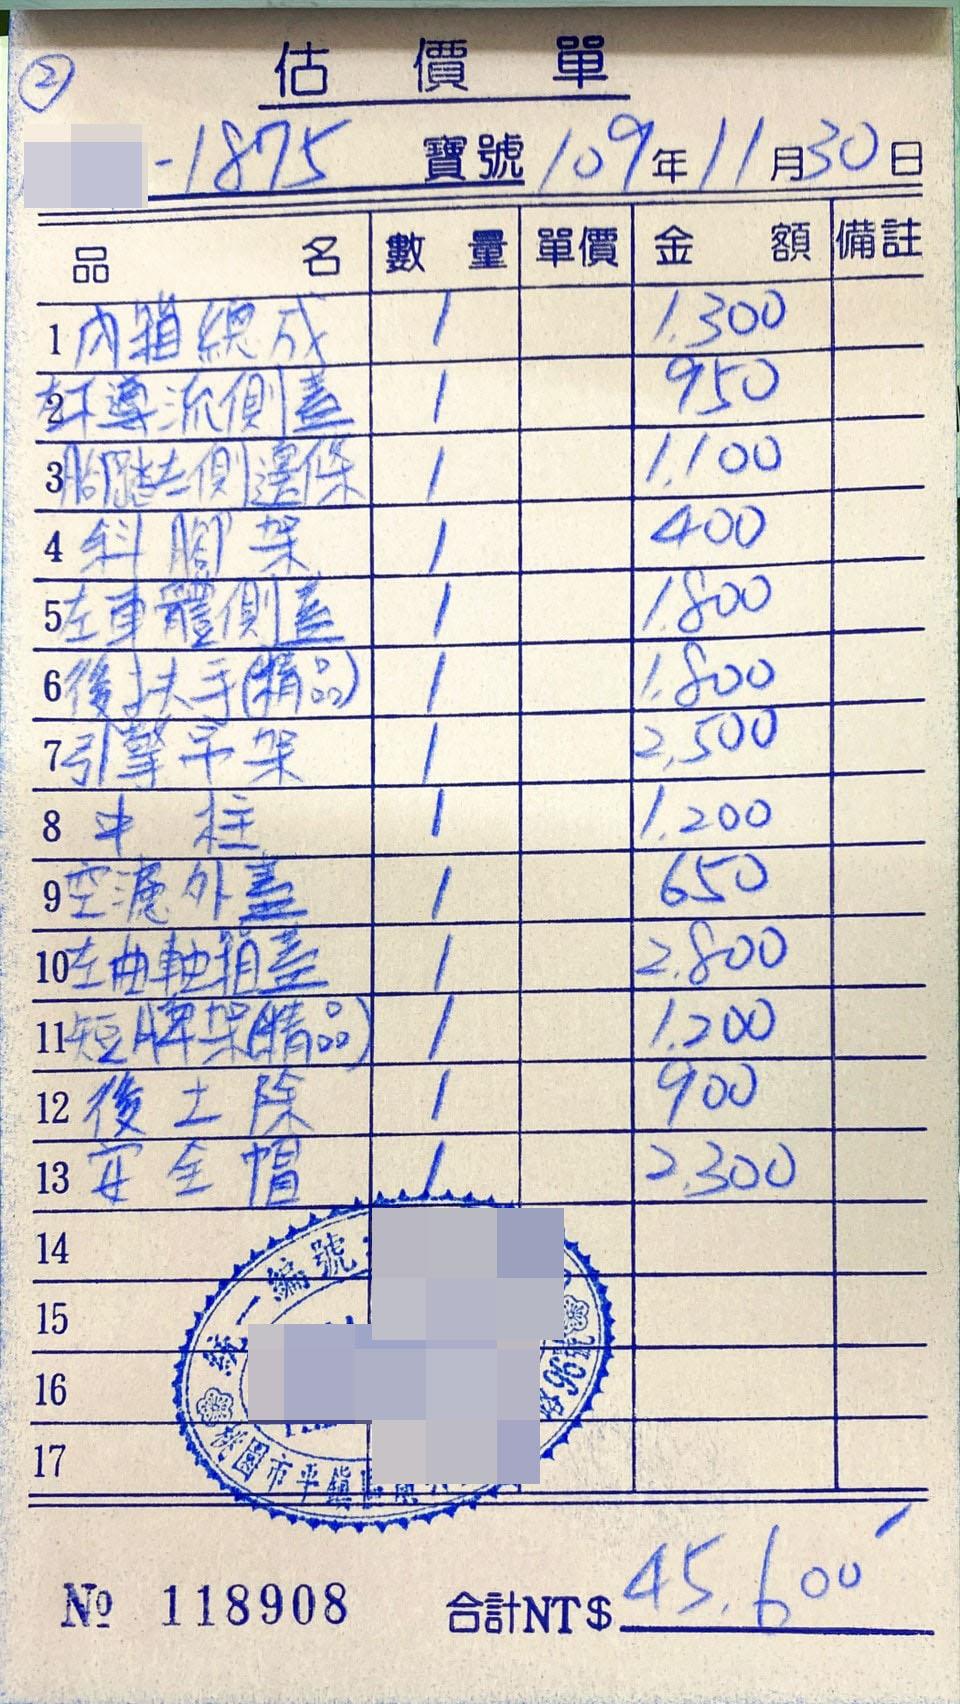 ②
估價單
-1875 寶號 109年11月30日
品名 數量 單價 金額 備註
1 內箱總成 1 1.300
2 左下導流側蓋 1 950
3 腳踏左側邊條 1 1.100
4 斜腳架 1 400
5 左車體側蓋 1 1.800
6 後扶手(精品) 1 1.800
7 引擎吊架 1 2,500
8 中柱 1 1.200
9 空濾外蓋 1 650
10 左曲軸箱蓋 1 2.800
11 短牌架(精品) 1 1.200
12 後土除 1 900
13 安全帽 1 2.300
14
15
16
17
統一編號
桃園市平鎮區
96號
№ 118908 合計NT$ 45.600